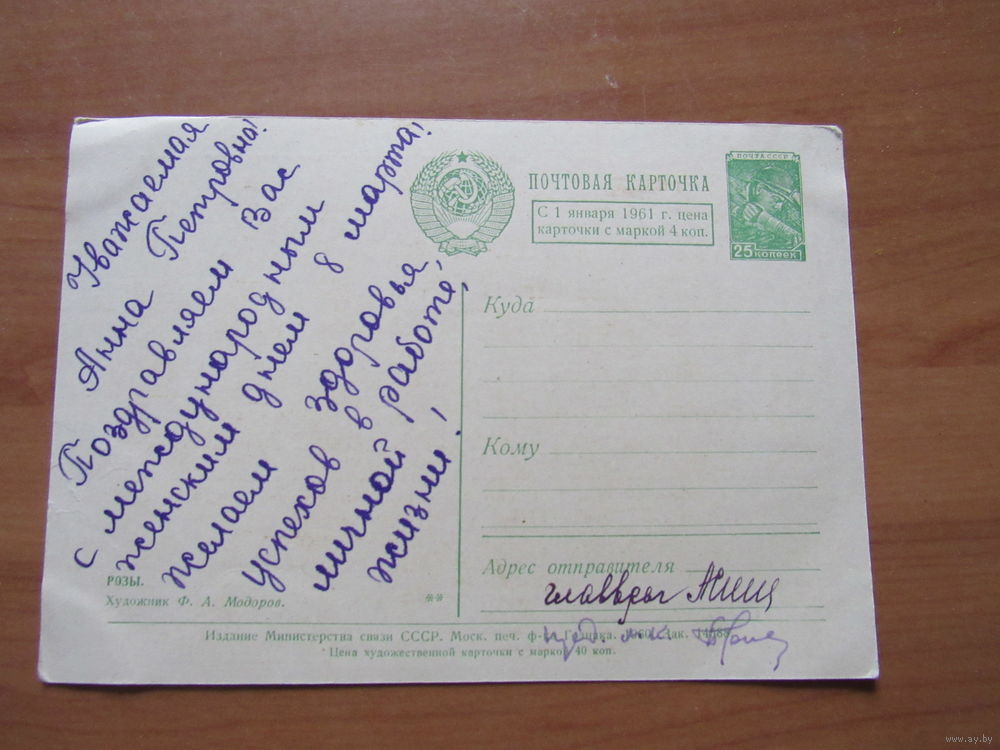 Уважаемая
Анна Петровна!
Поздравляем Вас
с международным
женским днем 8 марта!
желаем здоровья,
успехов в работе,
личной жизни!
РОЗЫ.
Художник Ф. А. Модоров.
**
ПОЧТОВАЯ КАРТОЧКА
С 1 января 1961 г. цена
карточки с маркой 4 коп.
ПОЧТА СССР
25 КОПЕЕК
Куда
Кому
Адрес отправителя
главврач
пред. м.к.
Издание Министерства связи СССР. Моск. печ. ф-ка Гознака. 1960. Зак.
Цена художественной карточки с маркой 40 коп.
www.ay.by